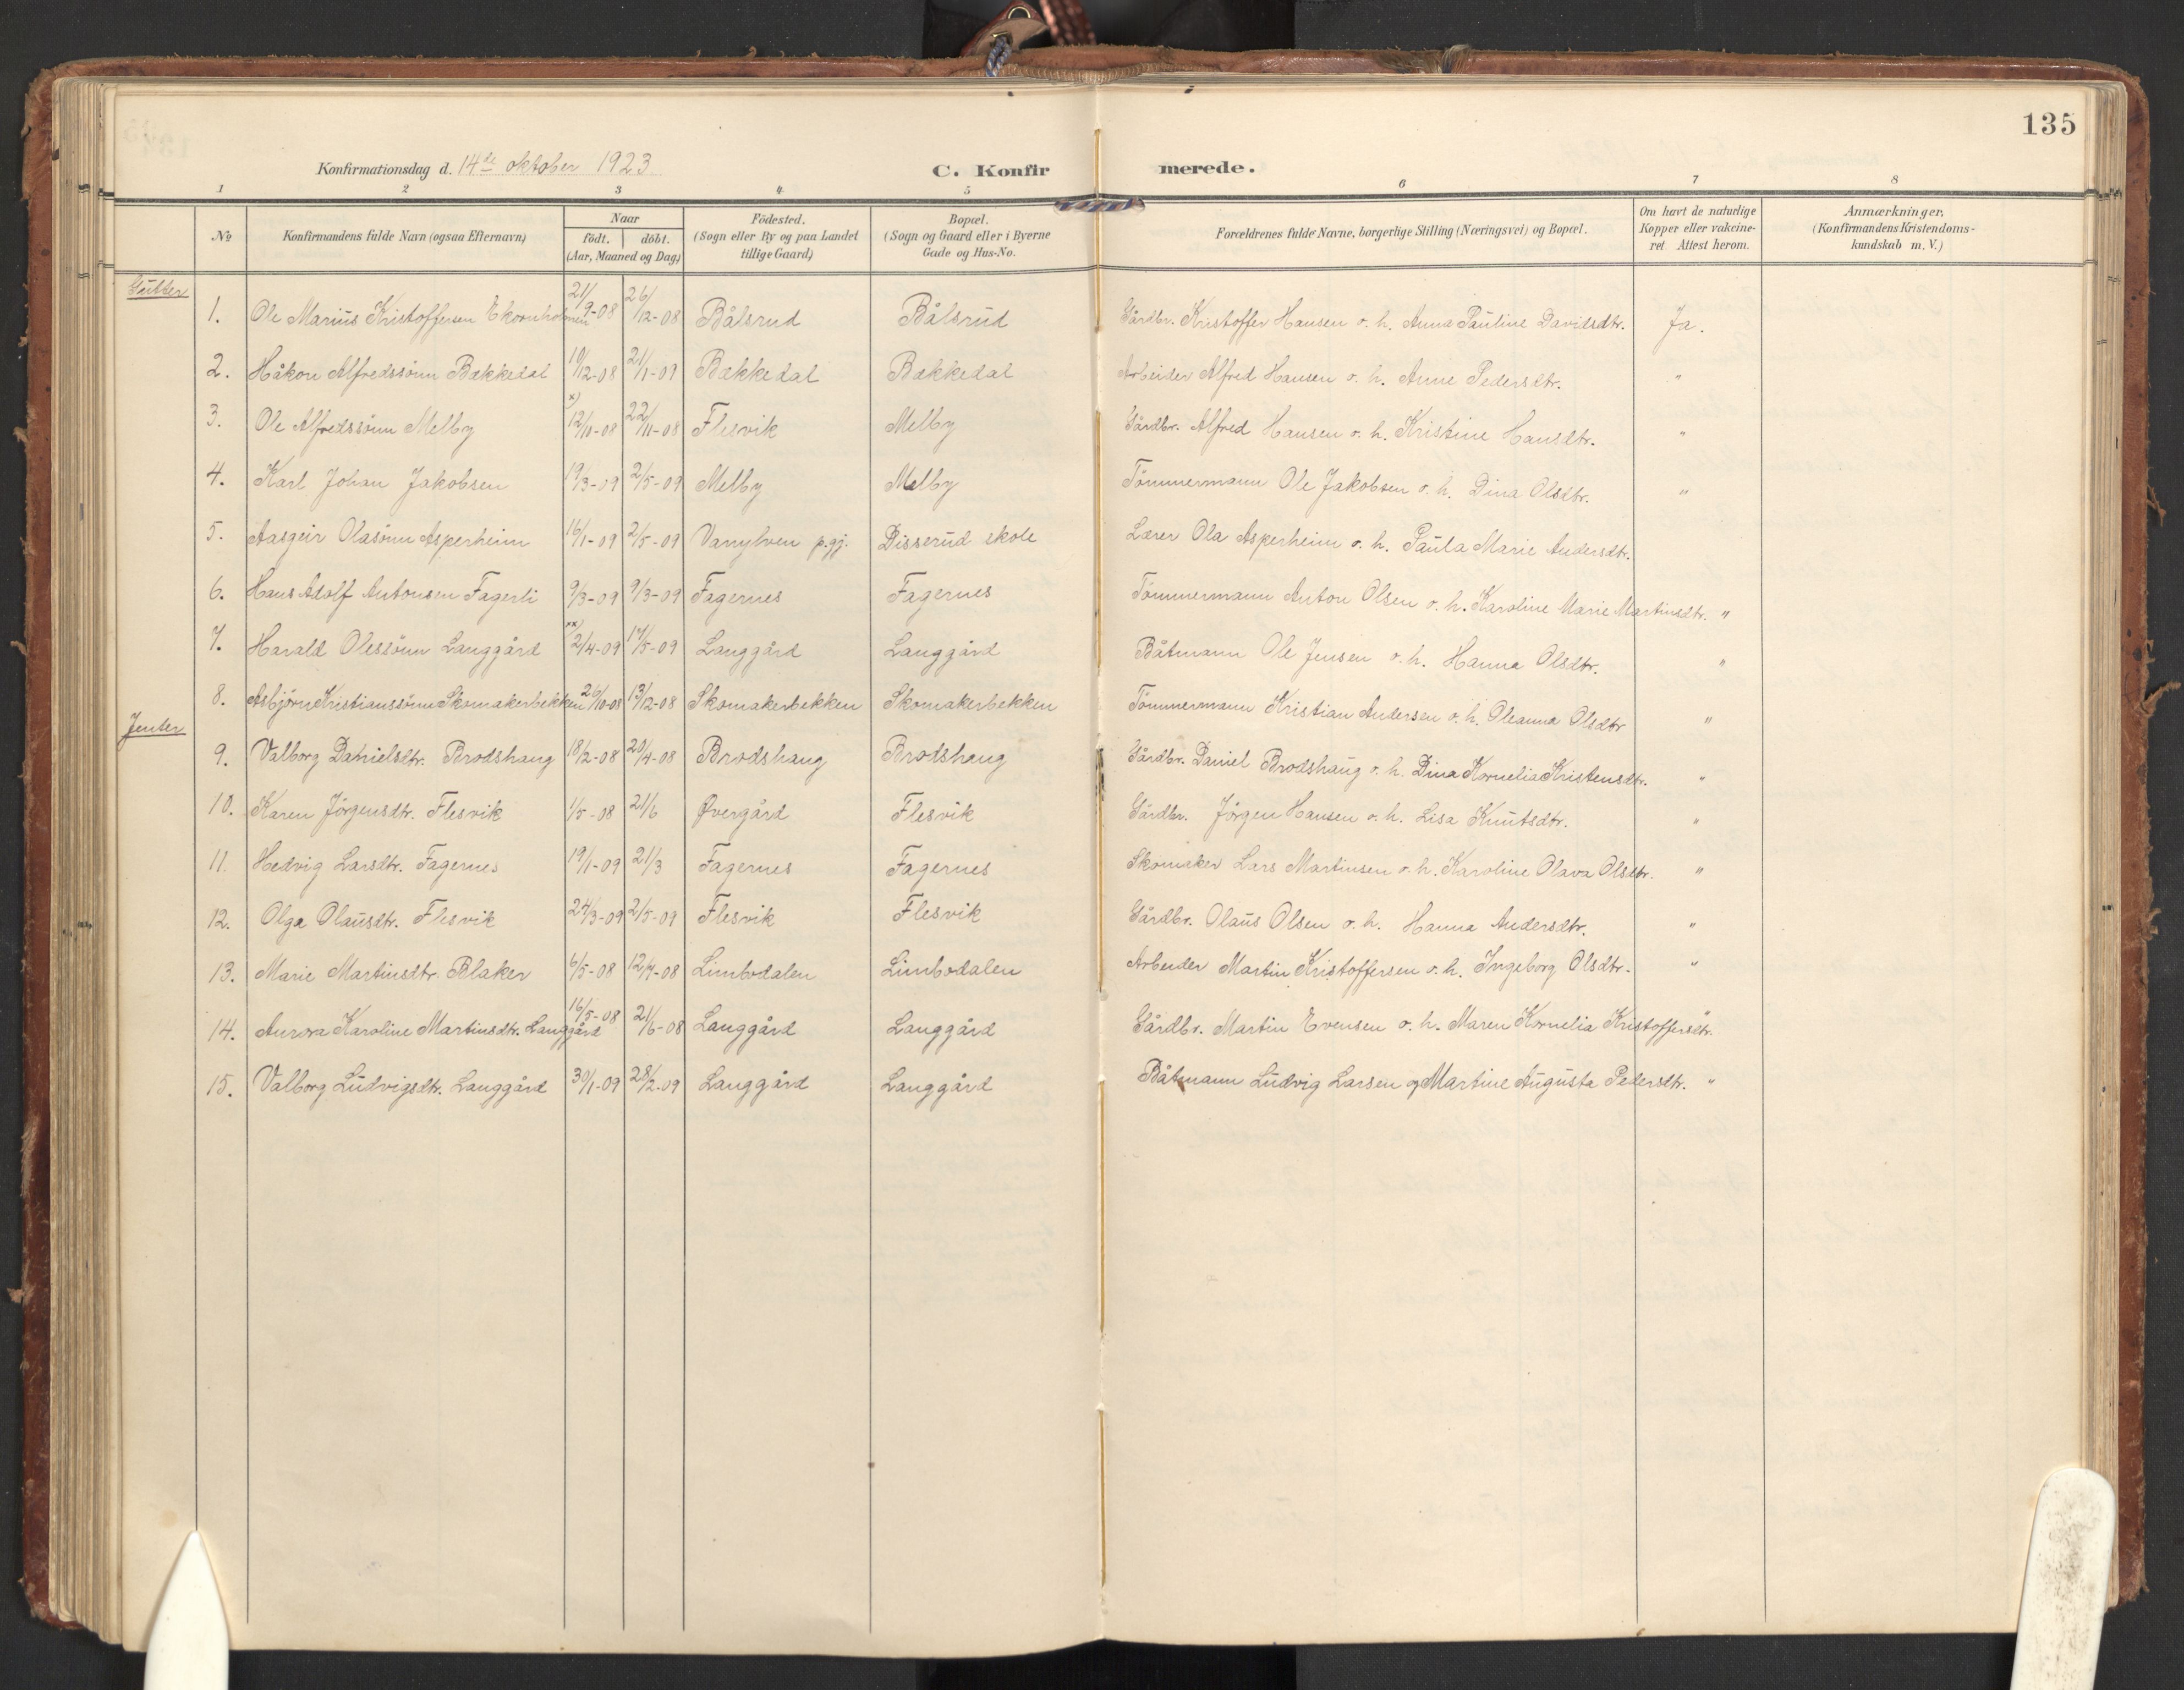 135
Konfirmationsdag d. 14de oktober 1923.
C. Konfirmerede.
1 2 3 4 5 6 7 8
No
Konfirmandens fulde Navn (ogsaa Efternavn)
Naar
födt. | döbt.
(Aar, Maaned og Dag)
Födested.
(Sogn eller By og paa Landet
tillige Gaard)
Bopæl.
(Sogn og Gaard eller i Byerne
Gade og Hus-No.
Forældrenes fulde Navne, borgerlige Stilling (Næringsvei) og Bopæl.
Om havt de naturlige
Kopper eller vakcine-
ret. Attest herom.
Anmærkninger.
(Konfirmandens Kristendoms-
kundskab m. V.)
Gutter
1. Ole Marius Kristoffersen Ekornholmen 21/9-08 26/12-08 Bålsrud Bålsrud Gårdbr. Kristoffer Hansen o. h. Anna Pauline Davidsdtr. Ja.
2. Håkon Alfredssönn Bakkedal 10/12-08 21/1-09 Bakkedal Bakkedal Arbeider Alfred Hansen o. h. Anne Pedersdtr. "
3. Ole Alfredssönn Melby x) 12/11-08 22/11-08 Flesvik Melby Gårdbr. Alfred Hansen o. h. Kristine Hansdtr. "
4. Karl Johan Jakobsen 19/3-09 2/5-09 Melby Melby Tömmermann Ole Jakobsen o. h. Dina Olsdtr. "
5. Aasgeir Olasönn Asperheim 16/1-09 2/5-09 Vanylven p.gj. Disserud skole Lærer Ola Asperheim o. h. Paula Marie Andersdtr.
6. Hans Adolf Antonsen Fagerli 9/3-09 9/3-09 Fagernes Fagernes Tömmermann Anton Olsen o. h. Karoline Marie Martinsdtr. "
7. Harald Olessönn Langgård xx) 2/4-09 17/5-09 Langgård Langgård Båtmann Ole Jensen o. h. Hanna Olsdtr. "
8. Asbjörn Kristianssönn Skomakerbekken 26/10-08 13/12-08 Skomakerbekken Skomakerbekken Tömmermann Kristian Andersen o. h. Oleanna Olsdtr "
Jenter
9. Valborg Danielsdtr. Brodshaug 18/2-08 20/4-08 Brodshaug Brodshaug Gårdbr. Daniel Brodshaug o. h. Dina Kornelia Kristensdtr. "
10. Karen Jörgensdtr. Flesvik 1/5-08 21/6 Øvergård Flesvik Gårdbr. Jörgen Hansen o. h. Lisa Knutsdtr. "
11. Hedvig Larsdtr. Fagernes 19/1-09 21/3 Fagernes Fagernes Skomaker Lars Martinsen o. h. Karoline Olava Olsdtr. "
12. Olga Olausdtr. Flesvik 24/3-09 2/5-09 Flesvik Flesvik Gårdbr. Olaus Olsen o. h. Hanna Andersdtr. "
13. Marie Martinsdtr. Blaker 6/5-08 12/7-08 Limbodalen Limbodalen Arbeider Martin Kristoffersen o. h. Ingeborg Olsdtr. "
14. Aurora Karoline Martinsdtr. Langgård 16/5-08 21/6-08 Langgård Langgård Gårdbr. Martin Evensen o. h. Maren Kornelia Kristoffersdtr. "
15. Valborg Ludvigsdtr. Langgård 30/1-09 28/2-09 Langgård Langgård Båtmann Ludvig Larsen og Martine Augusta Pedersdtr. "